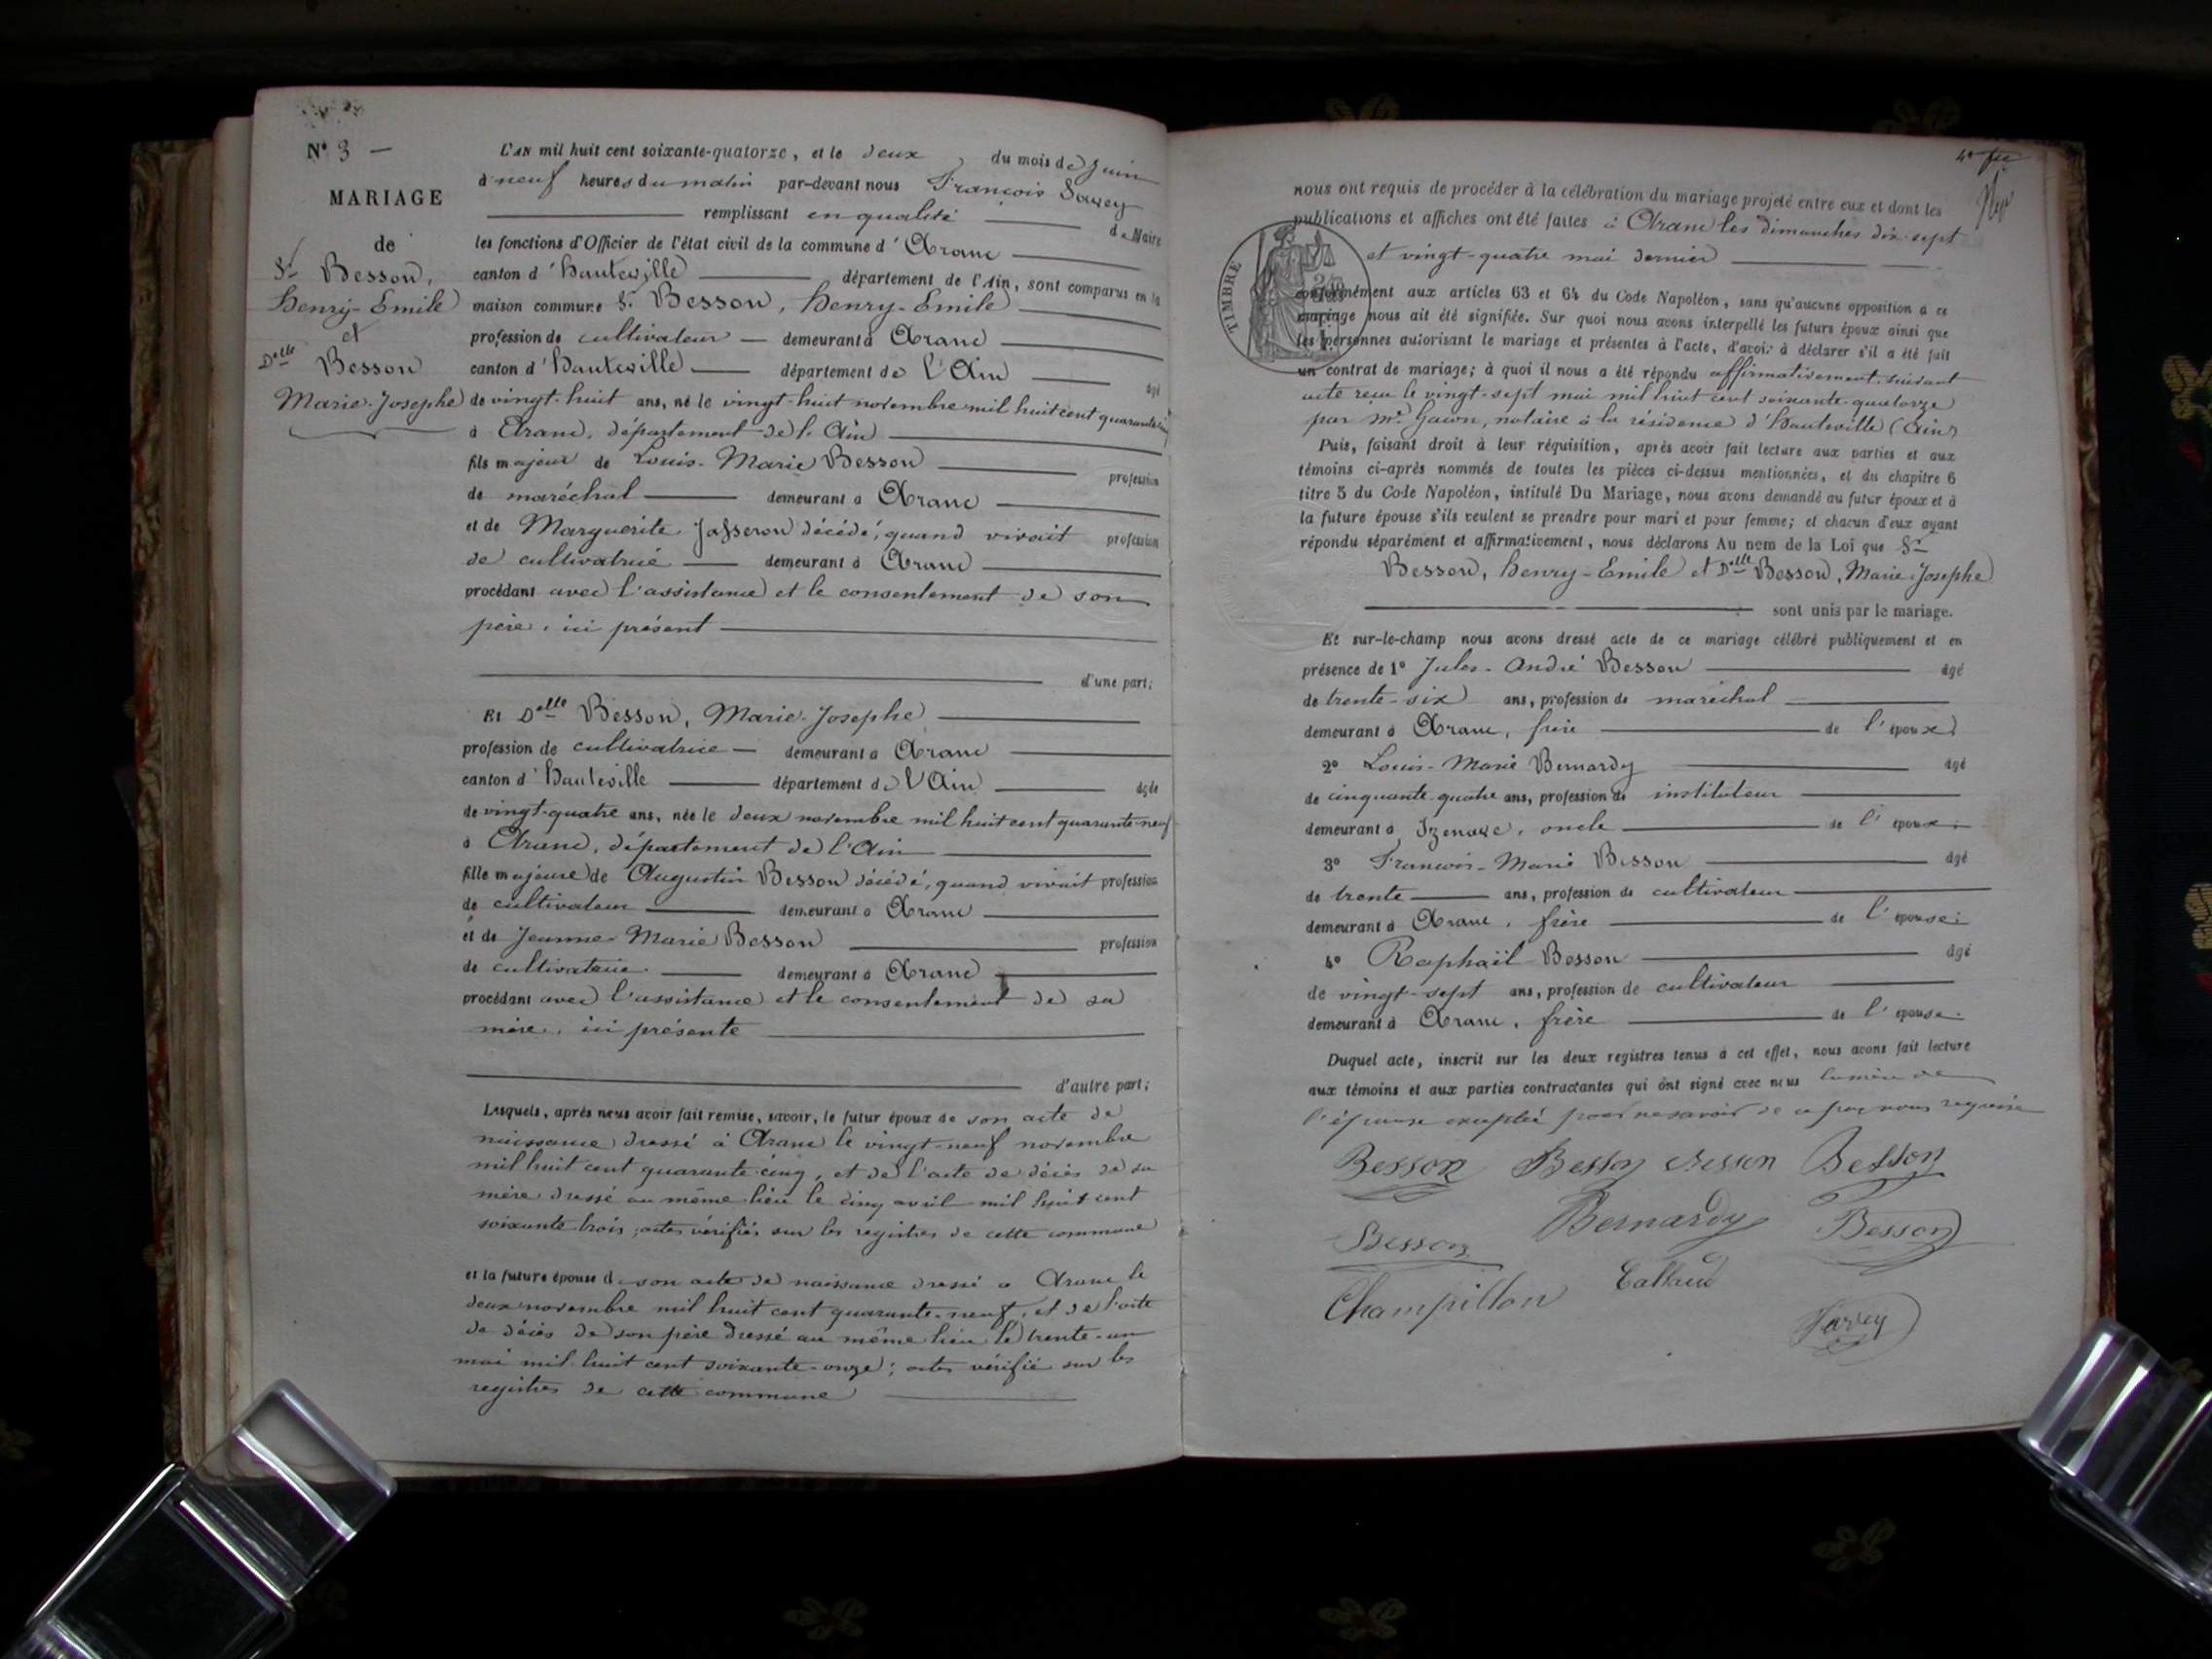 N° 3 —
MARIAGE
de
Sr Besson,
Henry-Emile
et
Delle Besson
Marie-Josephe
L'AN mil huit cent soixante-quatorze, et le deux du mois de Juin
à neuf heures du matin par-devant nous François Savey
remplissant en qualité de Maire
les fonctions d'Officier de l'état civil de la commune d'Aranc
canton d'hauteville département de l'Ain, sont comparus en la
maison commune Sr Besson, henry-Emile
profession de cultivateur — demeurant à Aranc
canton d'hauteville département de L'Ain âgé
de vingt-huit ans, né le vingt-huit novembre mil huit cent quarante-cinq
à Aranc, département de l'Ain
fils majeur de Louis-Marie Besson profession
de maréchal demeurant à Aranc
et de Marguerite Jasseron décédé, quand vivait profession
de cultivatrice demeurant à Aranc
procédant avec l'assistance et le consentement de son
père, ici présent
d'une part;
Et Delle Besson, Marie-Josephe
profession de cultivatrice — demeurant à Aranc
canton d'hauteville département de L'Ain âgée
de vingt-quatre ans, née le deux novembre mil huit cent quarante-neuf
à Aranc, département de l'Ain
fille majeure de Augustin Besson décédé, quand vivait profession
de cultivateur demeurant à Aranc
et de Jeanne-Marie Besson profession
de cultivatrice demeurant à Aranc
procédant avec l'assistance et le consentement de sa
mère, ici présente
d'autre part;
Lesquels, après nous avoir fait remise, savoir, le futur époux de son acte de
naissance dressé à Aranc le vingt-neuf novembre
mil huit cent quarante-cinq, et de l'acte de décès de sa
mère dressé au même lieu le cinq avril mil huit cent
soixante-trois; actes vérifiés sur les registres de cette commune
et la future épouse de son acte de naissance dressé à Aranc le
deux novembre mil huit cent quarante-neuf, et de l'acte
de décès de son père dressé au même lieu le trente-un
mai mil huit cent soixante-onze; actes vérifié sur les
registres de cette commune
nous ont requis de procéder à la célébration du mariage projeté entre eux et dont les
publications et affiches ont été faites à Aranc les dimanches dix-sept
et vingt-quatre mai dernier
TIMBRE
conformément aux articles 63 et 64 du Code Napoléon, sans qu'aucune opposition à ce
mariage nous ait été signifiée. Sur quoi nous avons interpellé les futurs époux ainsi que
les personnes autorisant le mariage et présentes à l'acte, d'avoir à déclarer s'il a été fait
un contrat de mariage; à quoi il nous a été répondu affirmativement suivant
acte reçu le vingt-sept mai mil huit cent soixante-quatorze
par Me Gacon, notaire à la résidence d'hauteville (Ain)
Puis, faisant droit à leur réquisition, après avoir fait lecture aux parties et aux
témoins ci-après nommés de toutes les pièces ci-dessus mentionnées, et du chapitre 6
titre 5 du Code Napoléon, intitulé Du Mariage, nous avons demandé au futur époux et à
la future épouse s'ils veulent se prendre pour mari et pour femme; et chacun d'eux ayant
répondu séparément et affirmativement, nous déclarons Au nom de la Loi que Sr
Besson, henry-Emile et Delle Besson, Marie-Josephe
sont unis par le mariage.
Et sur-le-champ nous avons dressé acte de ce mariage célébré publiquement et en
présence de 1° Jules-André Besson âgé
de trente-six ans, profession de maréchal
demeurant à Aranc, frère de l'époux;
2° Louis-Marie Bernardy âgé
de cinquante-quatre ans, profession de instituteur
demeurant à Izenave, oncle de l'époux;
3° François-Marie Besson âgé
de trente ans, profession de cultivateur
demeurant à Aranc, frère de l'épouse;
4° Raphaël Besson âgé
de vingt-sept ans, profession de cultivateur
demeurant à Aranc, frère de l'épouse.
Duquel acte, inscrit sur les deux registres tenus à cet effet, nous avons fait lecture
aux témoins et aux parties contractantes qui ont signé avec nous la mère de
l'épouse exceptée pour ne savoir de ce par nous requise
Besson Besson Besson Besson
Besson Bernardy Besson
Champillon Callaud
Savey